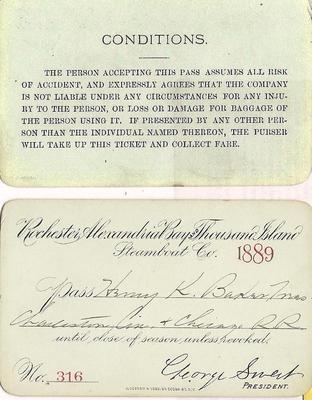 CONDITIONS.
THE PERSON ACCEPTING THIS PASS ASSUMES ALL RISK
OF ACCIDENT, AND EXPRESSLY AGREES THAT THE COMPANY
IS NOT LIABLE UNDER ANY CIRCUMSTANCES FOR ANY INJU-
RY TO THE PERSON, OR LOSS OR DAMAGE FOR BAGGAGE OF
THE PERSON USING IT. IF PRESENTED BY ANY OTHER PER-
SON THAN THE INDIVIDUAL NAMED THEREON, THE PURSER
WILL TAKE UP THIS TICKET AND COLLECT FARE.
Rochester, Alexandria Bay & Thousand Island
Steamboat Co. 1889
Pass Henry K.
Charleston, Cin. & Chicago R R
until close of season unless revoked.
No. 316 George
PRESIDENT.